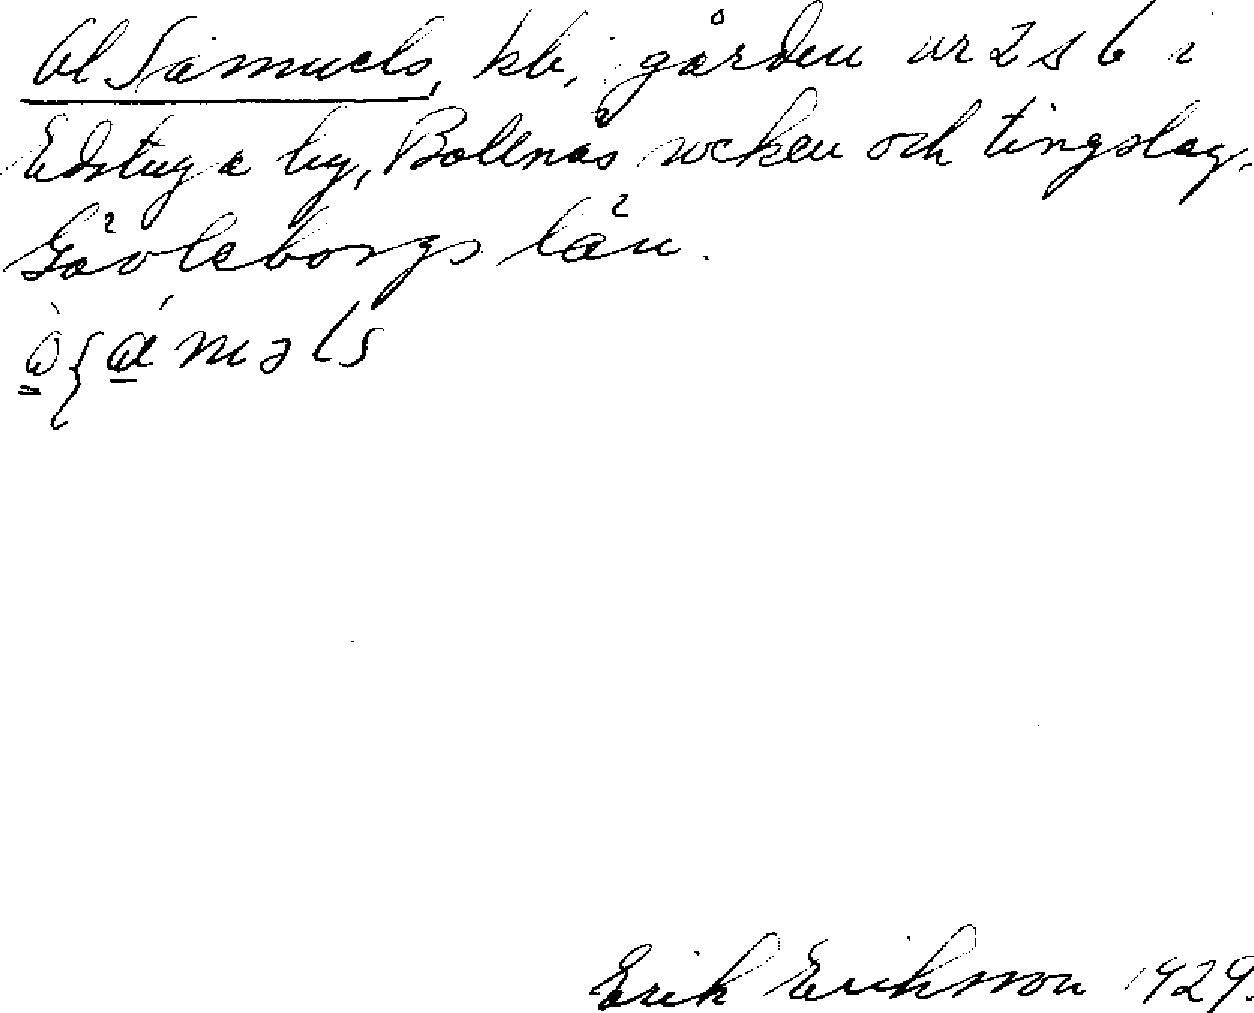 Ol Samuels, kb, gården nr 2 s 6 i
Edstuga by, Bollnäs socken och tingslag,
Gävleborgs län.
Erik Eriksson 1929.